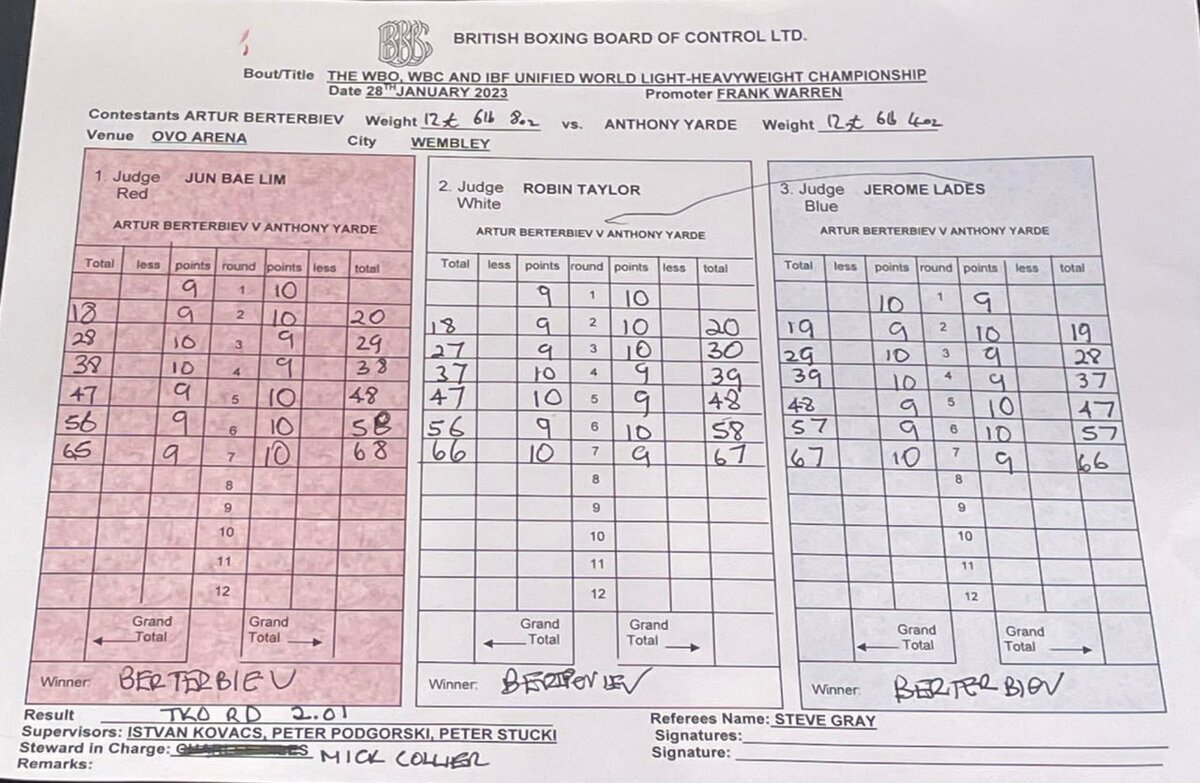 BBBC BRITISH BOXING BOARD OF CONTROL LTD.
Bout/Title THE WBO, WBC AND IBF UNIFIED WORLD LIGHT-HEAVYWEIGHT CHAMPIONSHIP
Date 28TH JANUARY 2023 Promoter FRANK WARREN
Contestants ARTUR BERTERBIEV Weight 12st 6lb 8oz vs. ANTHONY YARDE Weight 12st 6lb 4oz
Venue OVO ARENA City WEMBLEY
1. Judge JUN BAE LIM
Red
ARTUR BERTERBIEV V ANTHONY YARDE
Total less points round points less total
9 1 10
18 9 2 10 20
28 10 3 9 29
38 10 4 9 38
47 9 5 10 48
56 9 6 10 58
65 9 7 10 68
8
9
10
11
12
Grand Grand
Total Total
Winner: BERTERBIEV
2. Judge ROBIN TAYLOR
White
ARTUR BERTERBIEV V ANTHONY YARDE
Total less points round points less total
9 1 10
18 9 2 10 20
27 9 3 10 30
37 10 4 9 39
47 10 5 9 48
56 9 6 10 58
66 10 7 9 67
8
9
10
11
12
Grand Grand
Total Total
Winner:
3. Judge JEROME LADES
Blue
ARTUR BERTERBIEV V ANTHONY YARDE
Total less points round points less total
10 1 9
19 9 2 10 19
29 10 3 9 28
39 10 4 9 37
48 9 5 10 47
57 9 6 10 57
67 10 7 9 66
8
9
10
11
12
Grand Grand
Total Total
Winner: BERTERBIEV
Result TKO RD 2.01
Supervisors: ISTVAN KOVACS, PETER PODGORSKI, PETER STUCKI
Steward in Charge: MICK COLLIER
Remarks:
Referees Name: STEVE GRAY
Signatures:
Signature: